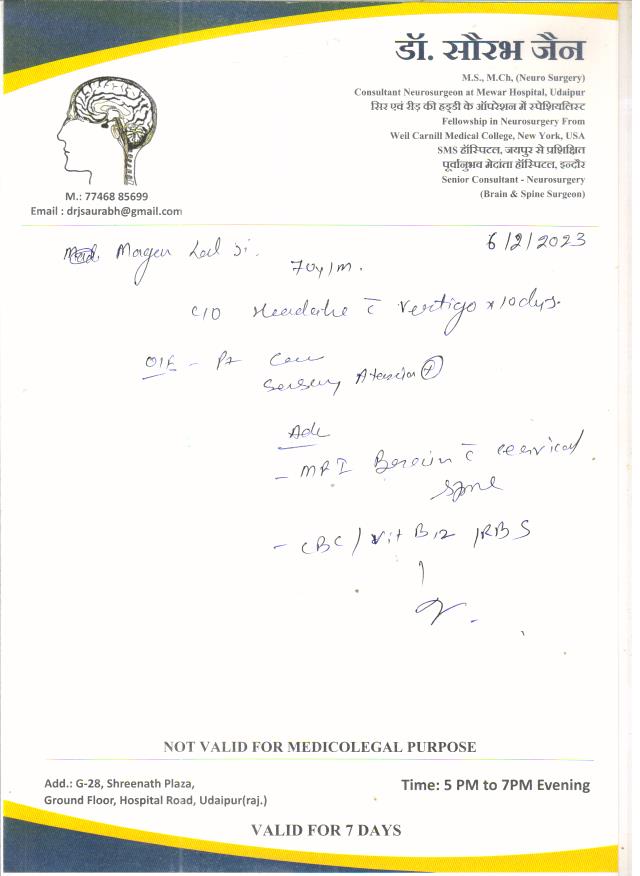 डॉ. सौरभ जैन
M.S., M.Ch, (Neuro Surgery)
Consultant Neurosurgeon at Mewar Hospital, Udaipur
सिर एवं रीड़ की हड्डी के ऑपरेशन में स्पेशियलिस्ट
Fellowship in Neurosurgery From
Weil Carnill Medical College, New York, USA
SMS हॉस्पिटल, जयपुर से प्रशिक्षित
पूर्वानुभव मेदांता हॉस्पिटल, इन्दौर
Senior Consultant - Neurosurgery
(Brain & Spine Surgeon)
M.: 77468 85699
Email : drjsaurabh@gmail.com
6/2/2023
Lal Ji.
70y/m.
C/O Headache c̄ Vertigo x 10 days.
O/E - Pt
Sensory
Adv
- MRI Brain c̄ cervical
spine
- CBC / Vit B12 / RBS
NOT VALID FOR MEDICOLEGAL PURPOSE
Add.: G-28, Shreenath Plaza,
Ground Floor, Hospital Road, Udaipur(raj.)
Time: 5 PM to 7PM Evening
VALID FOR 7 DAYS